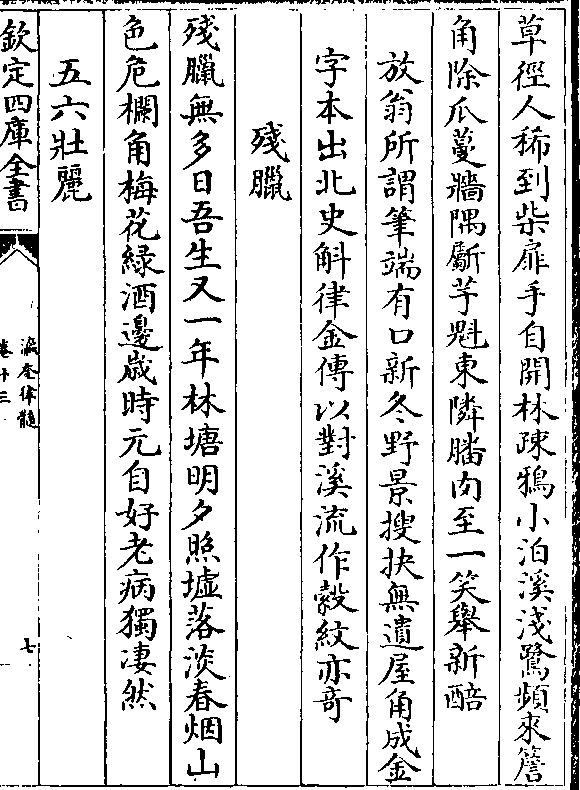 草徑人稀到柴扉手自開林疎鴉小泊溪淺鷺頻來簷
角除瓜蔓牆隅斸芋魁東隣膰肉至一笑舉新醅
放翁所謂筆端有口新冬野景搜抉無遺屋角成金
字本出北史斛律金傳以對溪流作縠紋亦奇
殘臘
殘臘無多日吾生又一年林塘明夕照墟落淡春烟山
色危欄角梅花緑酒邊歳時元自好老病獨凄然
五六壯麗
欽定四庫全書
瀛奎律髓
卷十三
七